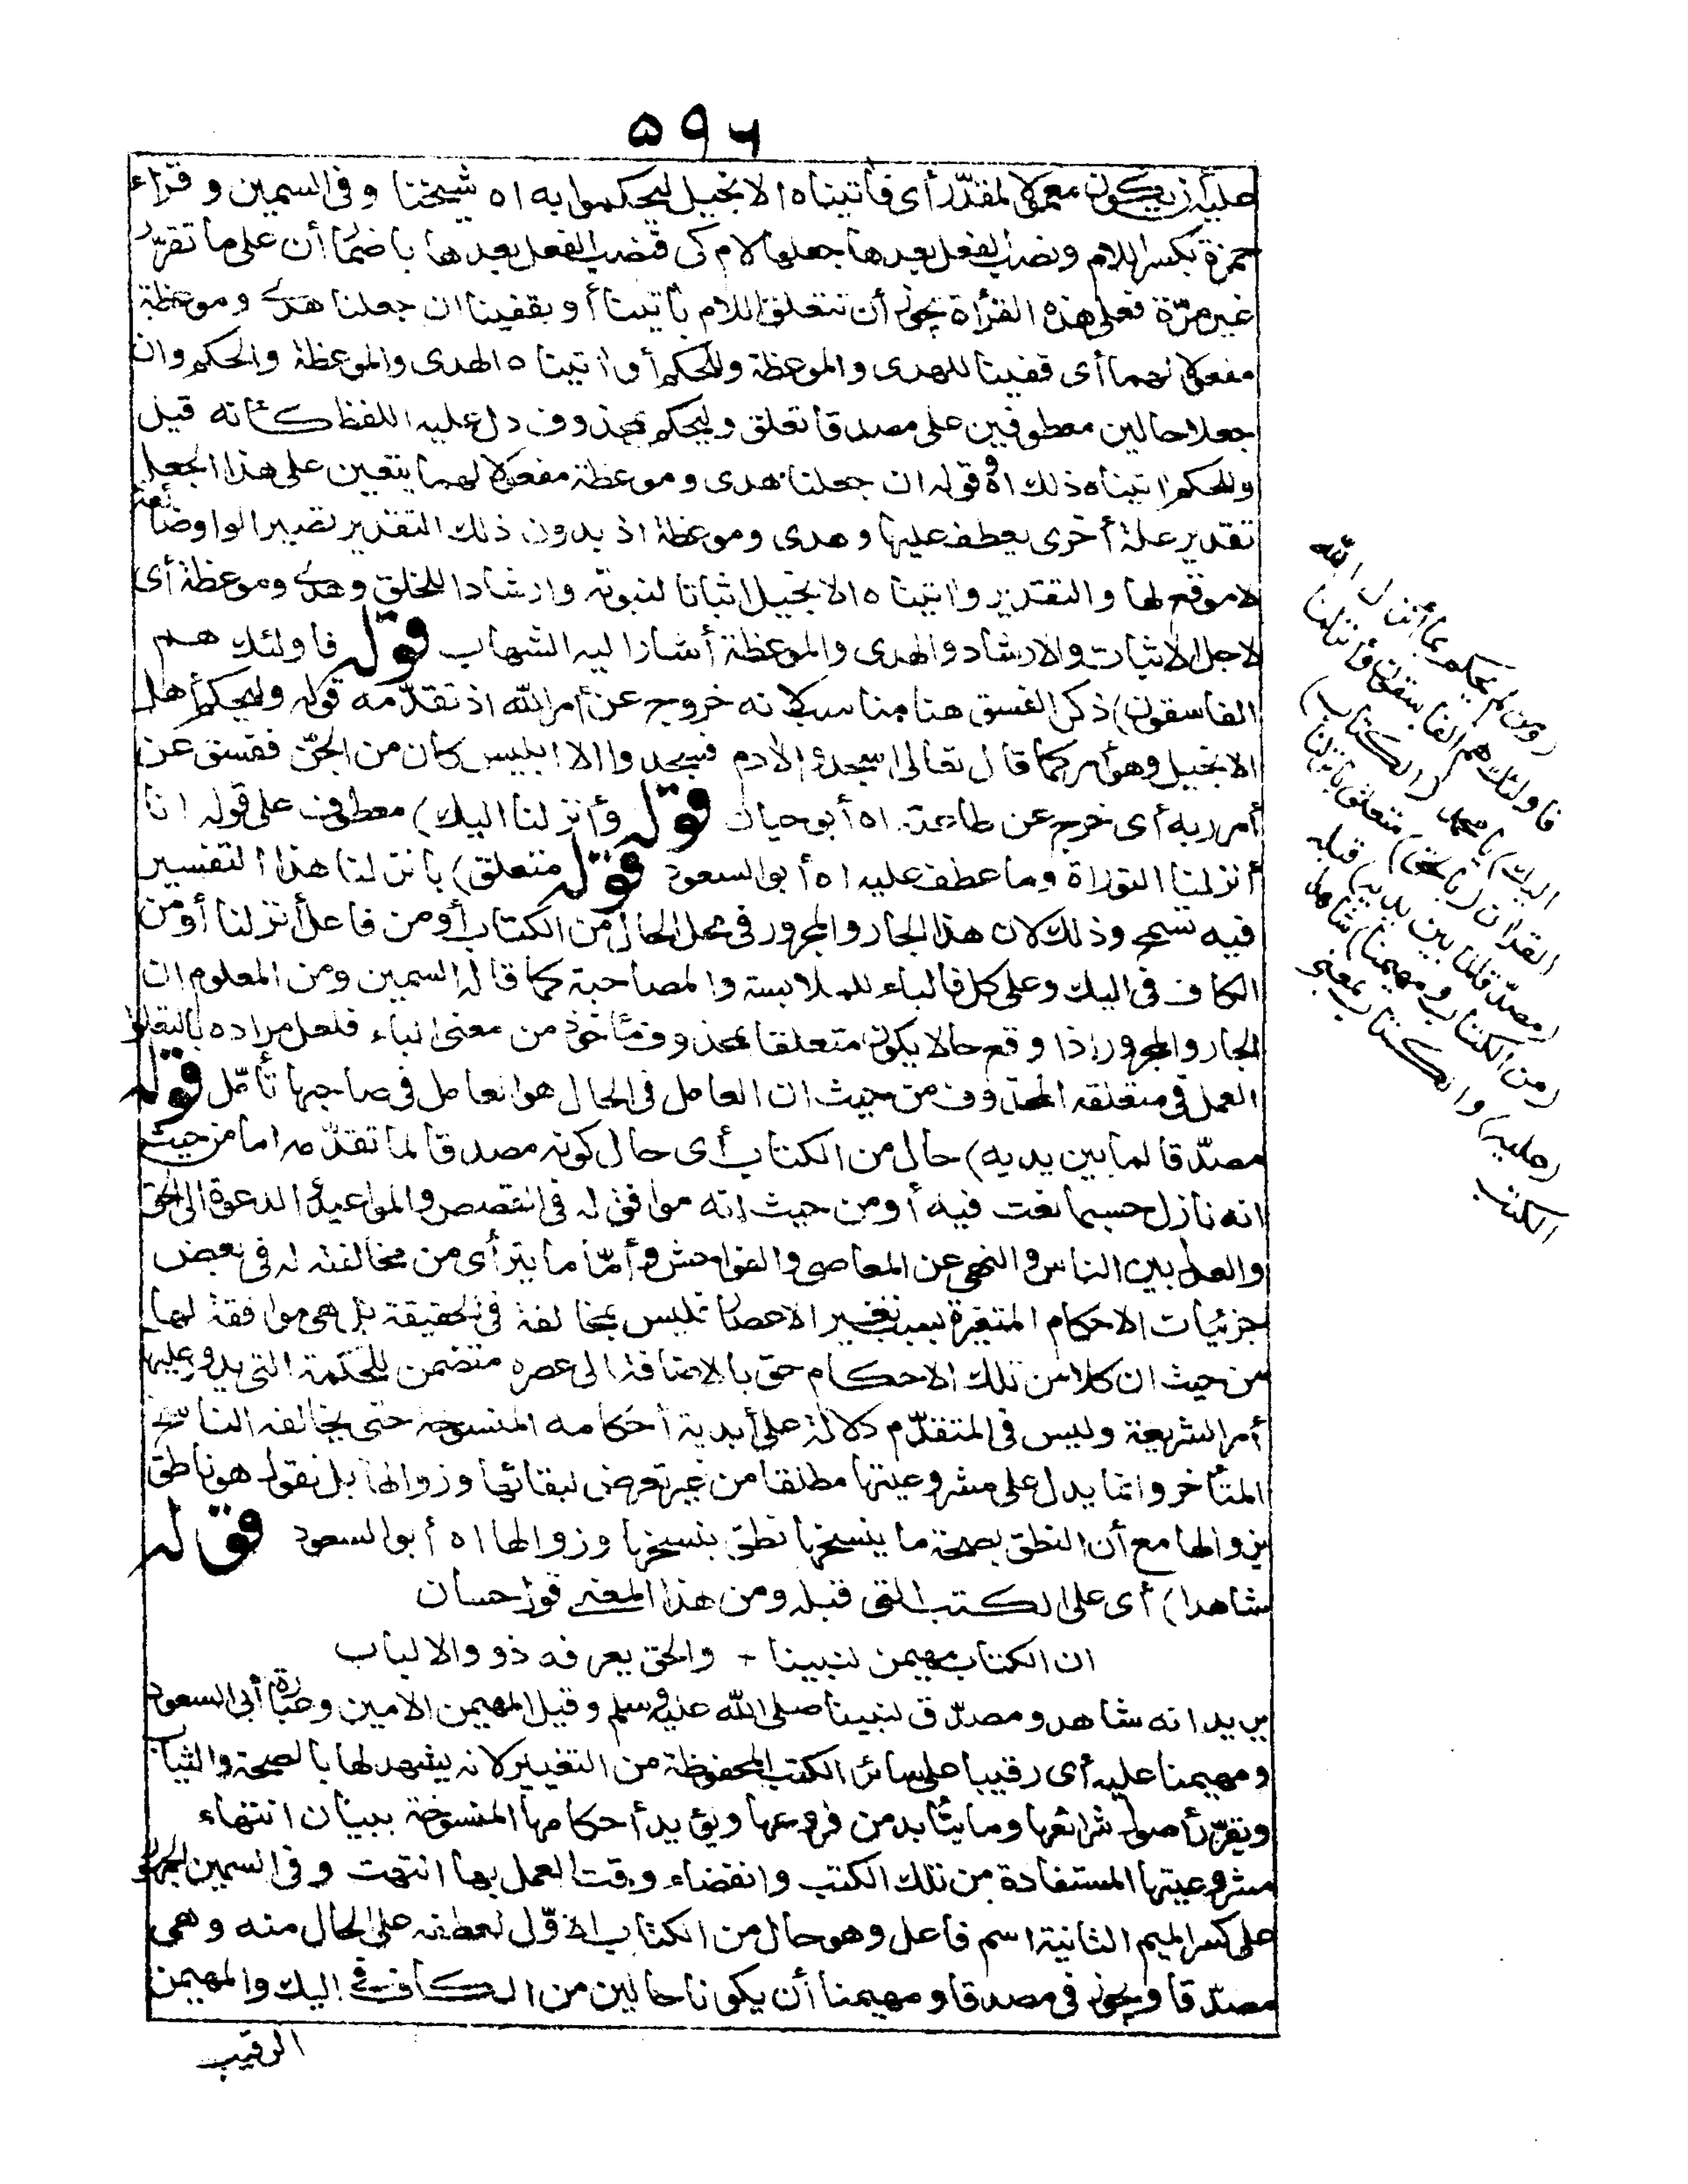 ۵۹۶
عليه ان يكون معمولا لمقدّر أى فأتيناه الانجيل ليحكموا به اه شيخنا وفى السمين وقراء
حمزة بكسر اللام ونصب الفعل بعدها جعلها لام كى فنصب الفعل بعدها باضمار أن على ما تقرّر
غير مرّة فعلى هذه القرأة يجوز أن تتعلق اللام بأتينا أو بقفينا ان جعلنا هدى وموعظة
مفعولا لهما أى قفينا للهدى والموعظة وللحكم أو اتيناه الهدى والموعظة والحكم وان
جعلا حالين معطوفين على مصدقا تعلق وليحكم بمحذوف دل عليه اللفظ كأنه قيل
وللحكم اتيناه ذلك اه وقوله ان جعلنا هدى وموعظة مفعولا لهما يتعين على هذا الجعل
تقدير علة أخرى يعطف عليها وهدى وموعظة اذ بدون ذلك التقدير تصير الواو ضائعة
لا موقع لها والتقدير واتيناه الانجيل اثباتا لنبوته وارشادا للخلق وهدى وموعظة أى
لاجل الاثبات والارشاد والهدى والموعظة أشار اليه الشهاب قوله فاولئك هم
الفاسقون) ذكر الفسق هنا مناسب لانه خروج عن أمر الله اذ تقدّمه قوله وليحكم أهل
الانجيل وهو أمر كما قال تعالى اسجدوا لادم فسجدوا الا ابليس كان من الجنّ ففسق عن
أمر ربه أى خرج عن طاعته اه أبو حيان قوله وأنزلنا اليك) معطوف على قوله انا
أنزلنا التوراة وما عطف عليه اه أبو السعود قوله متعلق) بانزلنا هذا التفسير
فيه تسمح وذلك لان هذا الجار والمجرور فى محل الحال من الكتاب أو من فاعل أنزلنا أو من
الكاف فى اليك وعلى كل فالباء للملابسة والمصاحبة كما قاله السمين ومن المعلوم ان
الجار والمجرور اذا وقع حالا يكون متعلقا بمحذوف مأخوذ من معنى الباء فلعل مراده بالتعلق
العمل فى متعلقه المحذوف من حيث ان العامل فى الحال هو العامل فى صاحبها تأمّل قوله
مصدّقا لما بين يديه) حال من الكتاب أى حال كونه مصدقا لما تقدّمه اما من حيث
انه نازل حسبما نعت فيه أو من حيث انه موافق له فى القصص والمواعيد والدعوة الى الحق
والعدل بين الناس والنهى عن المعاصى والفواحش وأمّا ما يتراأى من مخالفته له فى بعض
جزئيات الاحكام المتغيرة بسبب تغير الاعصار فليس بمخالفة فى الحقيقة بل هى موافقة لها
من حيث ان كلا من تلك الاحكام حق بالاضافة الى عصره متضمن للحكمة التى يدور عليها
أمر الشريعة وليس فى المتقدّم دلالة على أبدية أحكامه المنسوخة حتى يخالفه الناسخ
المتأخر وانما يدل على مشروعيتها مطلقا من غير تعرض لبقائها وزوالها بل نقول هو ناطق
بزوالها مع أن النطق بصحة ما ينسخها نطق بنسخها وزوالها اه أبو السعود قوله
شاهدا) أى على الكتب التى قبله ومن هذا المعنى قول حسان
ان الكتاب مهيمن لنبينا + والحق يعرفه ذوو الالباب
يريد انه شاهد ومصدّق لنبينا صلى الله عليه وسلم وقيل المهيمن الامين وعبارة أبى السعود
ومهيمنا عليه أى رقيبا على سائر الكتب المحفوظة من التغيير لانه يشهد لها بالصحة والثبات
ويقرّر أصول شرائعها وما يتأبد من فروعها ويؤيد أحكامها المنسوخة ببيان انتهاء
مشروعيتها المستفادة من تلك الكتب وانقضاء وقت العمل بها انتهت وفى السمين الجمهور
على كسر الميم الثانية اسم فاعل وهو حال من الكتاب الاوّل لعطفه على الحال منه وهى
مصدّقا ويجوز فى مصدقا ومهيمنا أن يكونا حالين من الكاف فى اليك والمهيمن
الرقيب
(ومن لم يحكم بما أنزل الله
فاولئك هم الفاسقون وأنزلنا
اليك) يا محمد (الكتاب)
القرأن (بالحق) متعلق بأنزلنا
(مصدّقا لما بين يديه) قبله
(من الكتاب ومهيمنا) شاهدا
(عليه) والكتاب بمعنى
الكتب